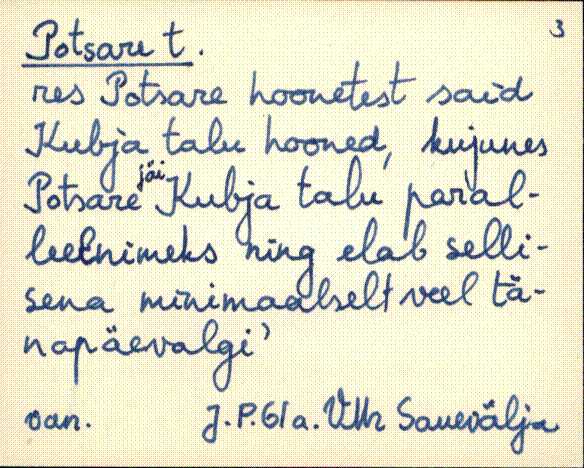 3
Potsare t.
res Potsare hoonetest said
Kubja talu hooned, kujunes
jäi
Potsare Kubja talu paral-
leelnimeks ning elab selli-
sena minimaalselt veel tä-
napäevalgi'
van. J.P. 61a. Sauevälja